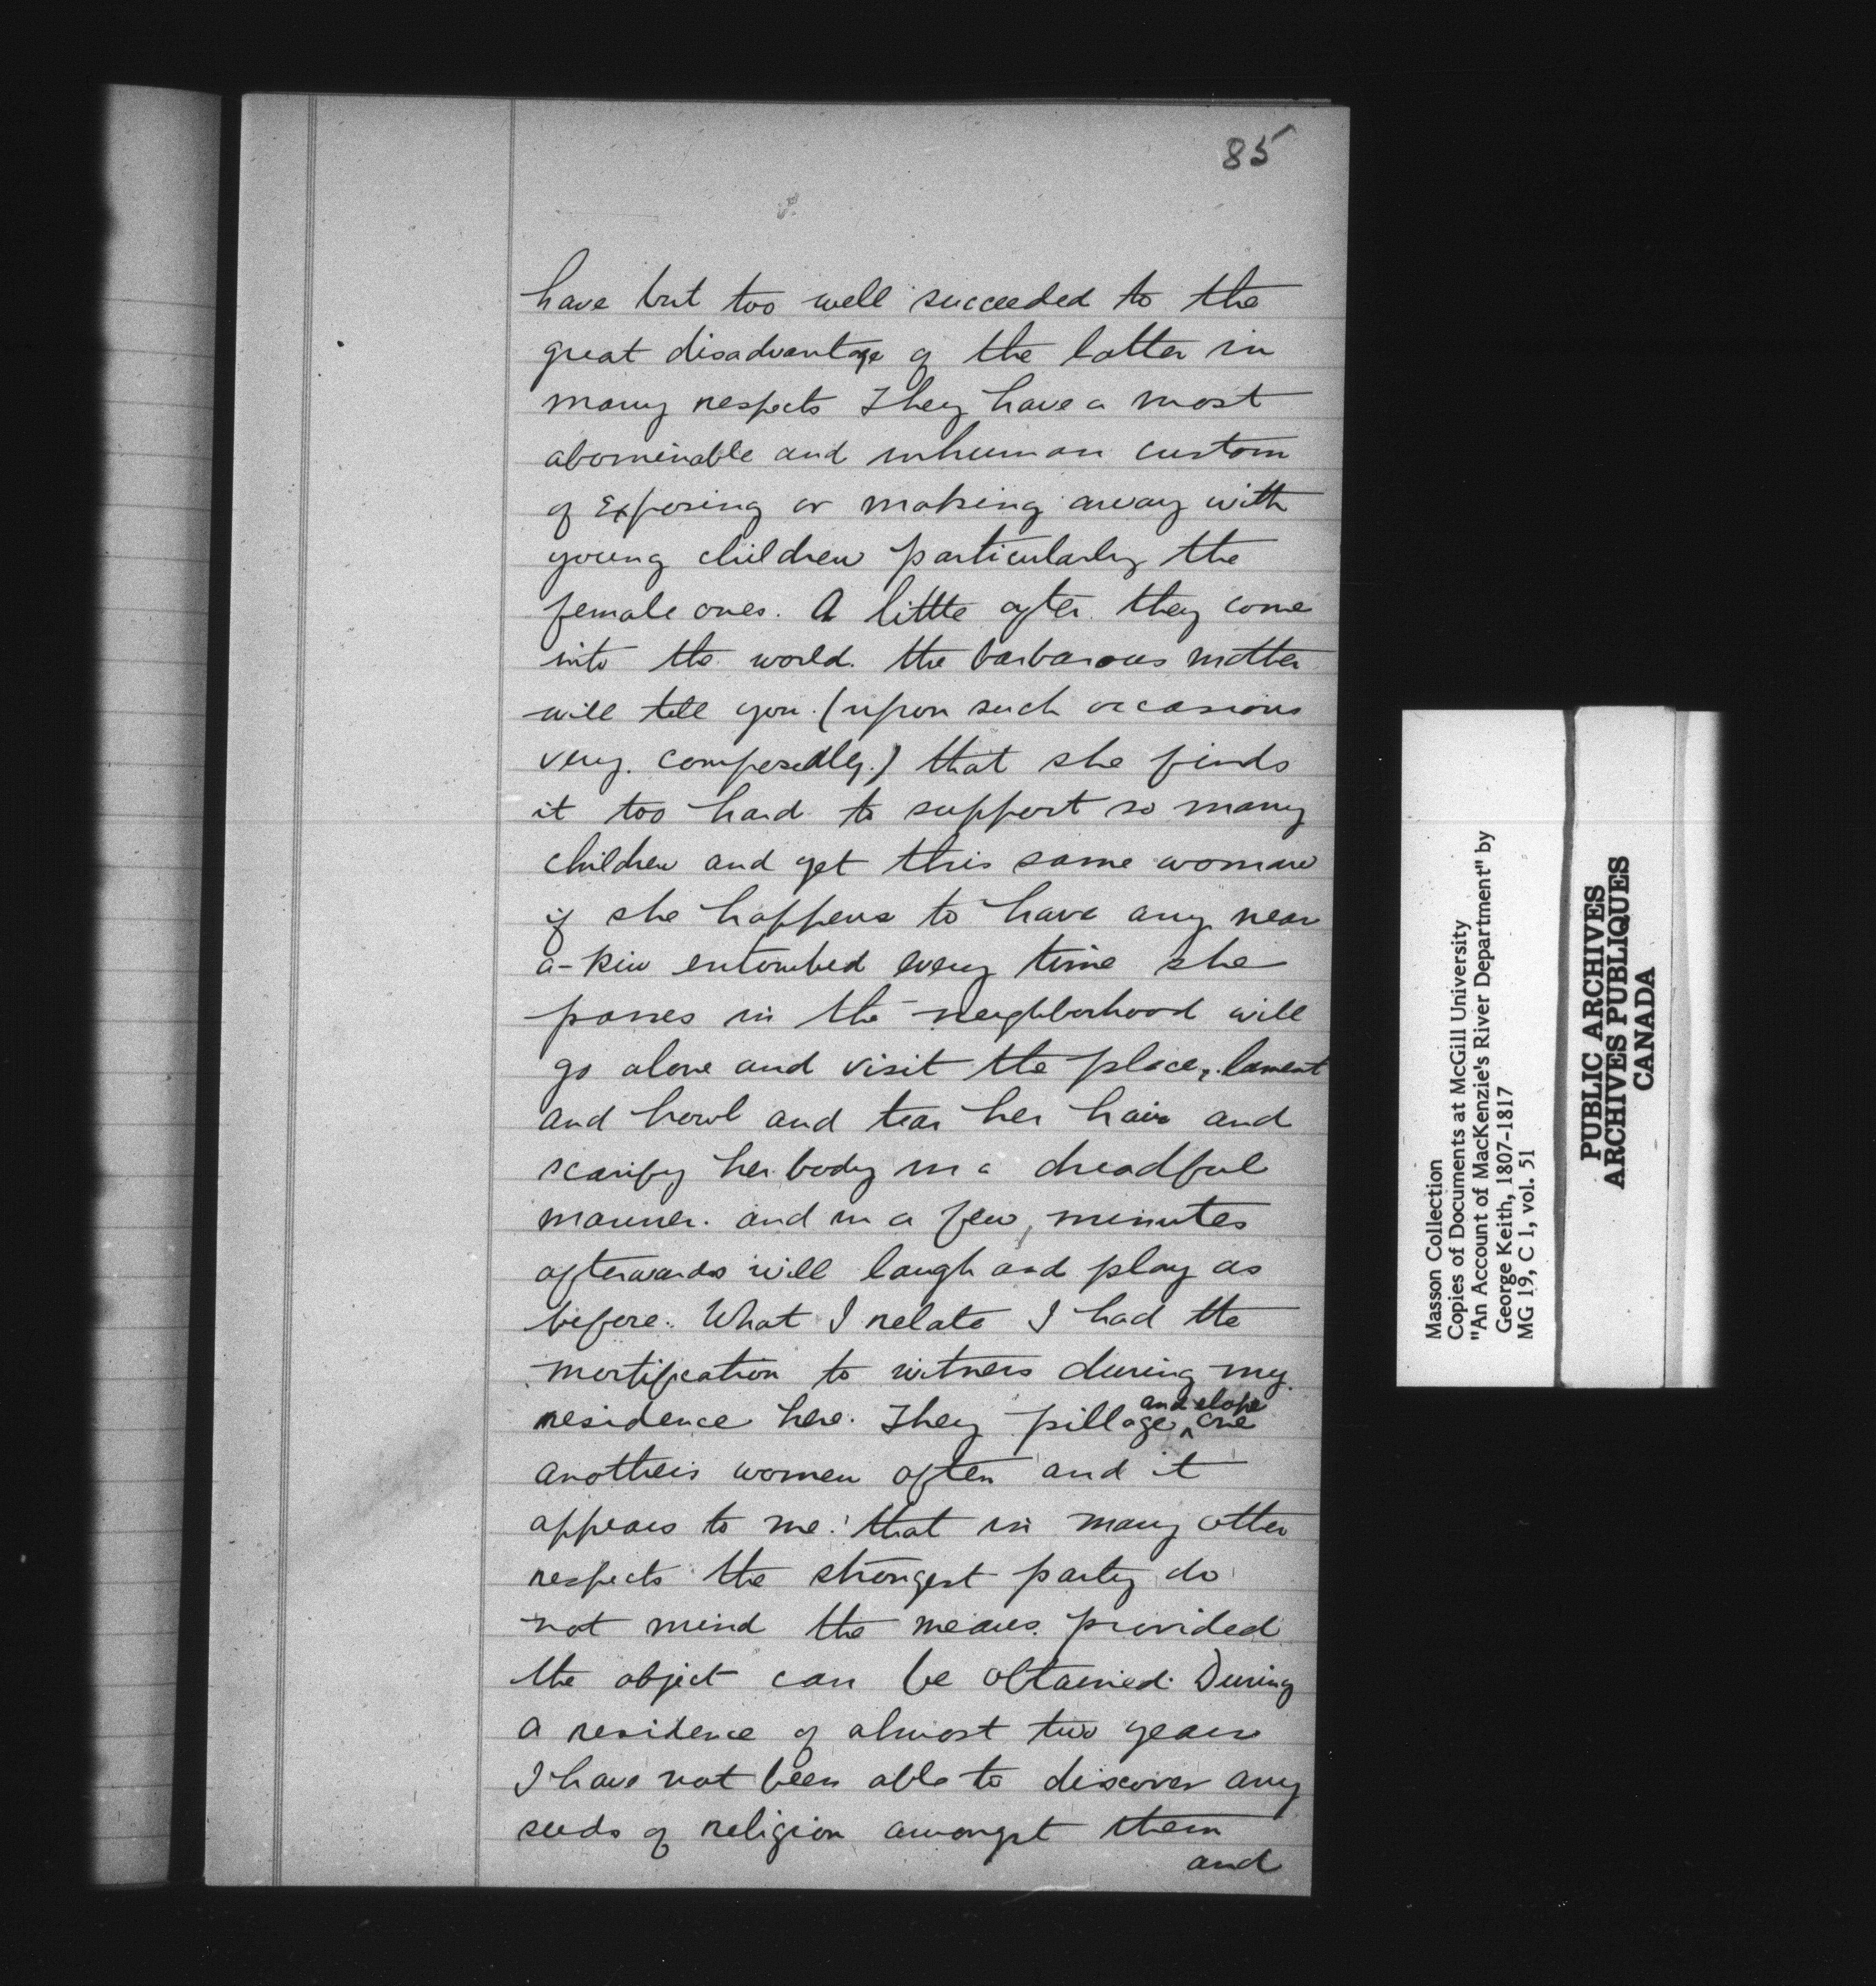 85
have but too well succeeded to the
great disadvantage of the latter in
many respects They have a most
abominable and inhuman custom
of Exposing or making away with
young children particularly the
female ones. A little after they come
into the world. the barbarous mother
will tell you. (upon such occasions
very. composedly.) that she finds
it too hard to support so many
children and yet this same woman
if she happens to have any near
a-kin entombed every time she
passes in the neighborhood will
go alone and visit the place, lament
and howl and tear her hair and
scarify her body in a dreadful
manner. and in a few, minutes
afterwards will laugh and play as
before. What I relate I had the
mortification to witness during my
residence here. They pillage and elope one
anothers women often and it
appears to me. that in many other
respects the strongest party do
not mind the means. provided
the object can be obtained. During
a residence of almost two years
I have not been able to discover any
seeds of religion amongst them
and
Masson Collection
Copies of Documents at McGill University
"An Account of MacKenzie's River Department" by
George Keith, 1807-1817
MG 19, C 1, vol. 51
PUBLIC ARCHIVES
ARCHIVES PUBLIQUES
CANADA